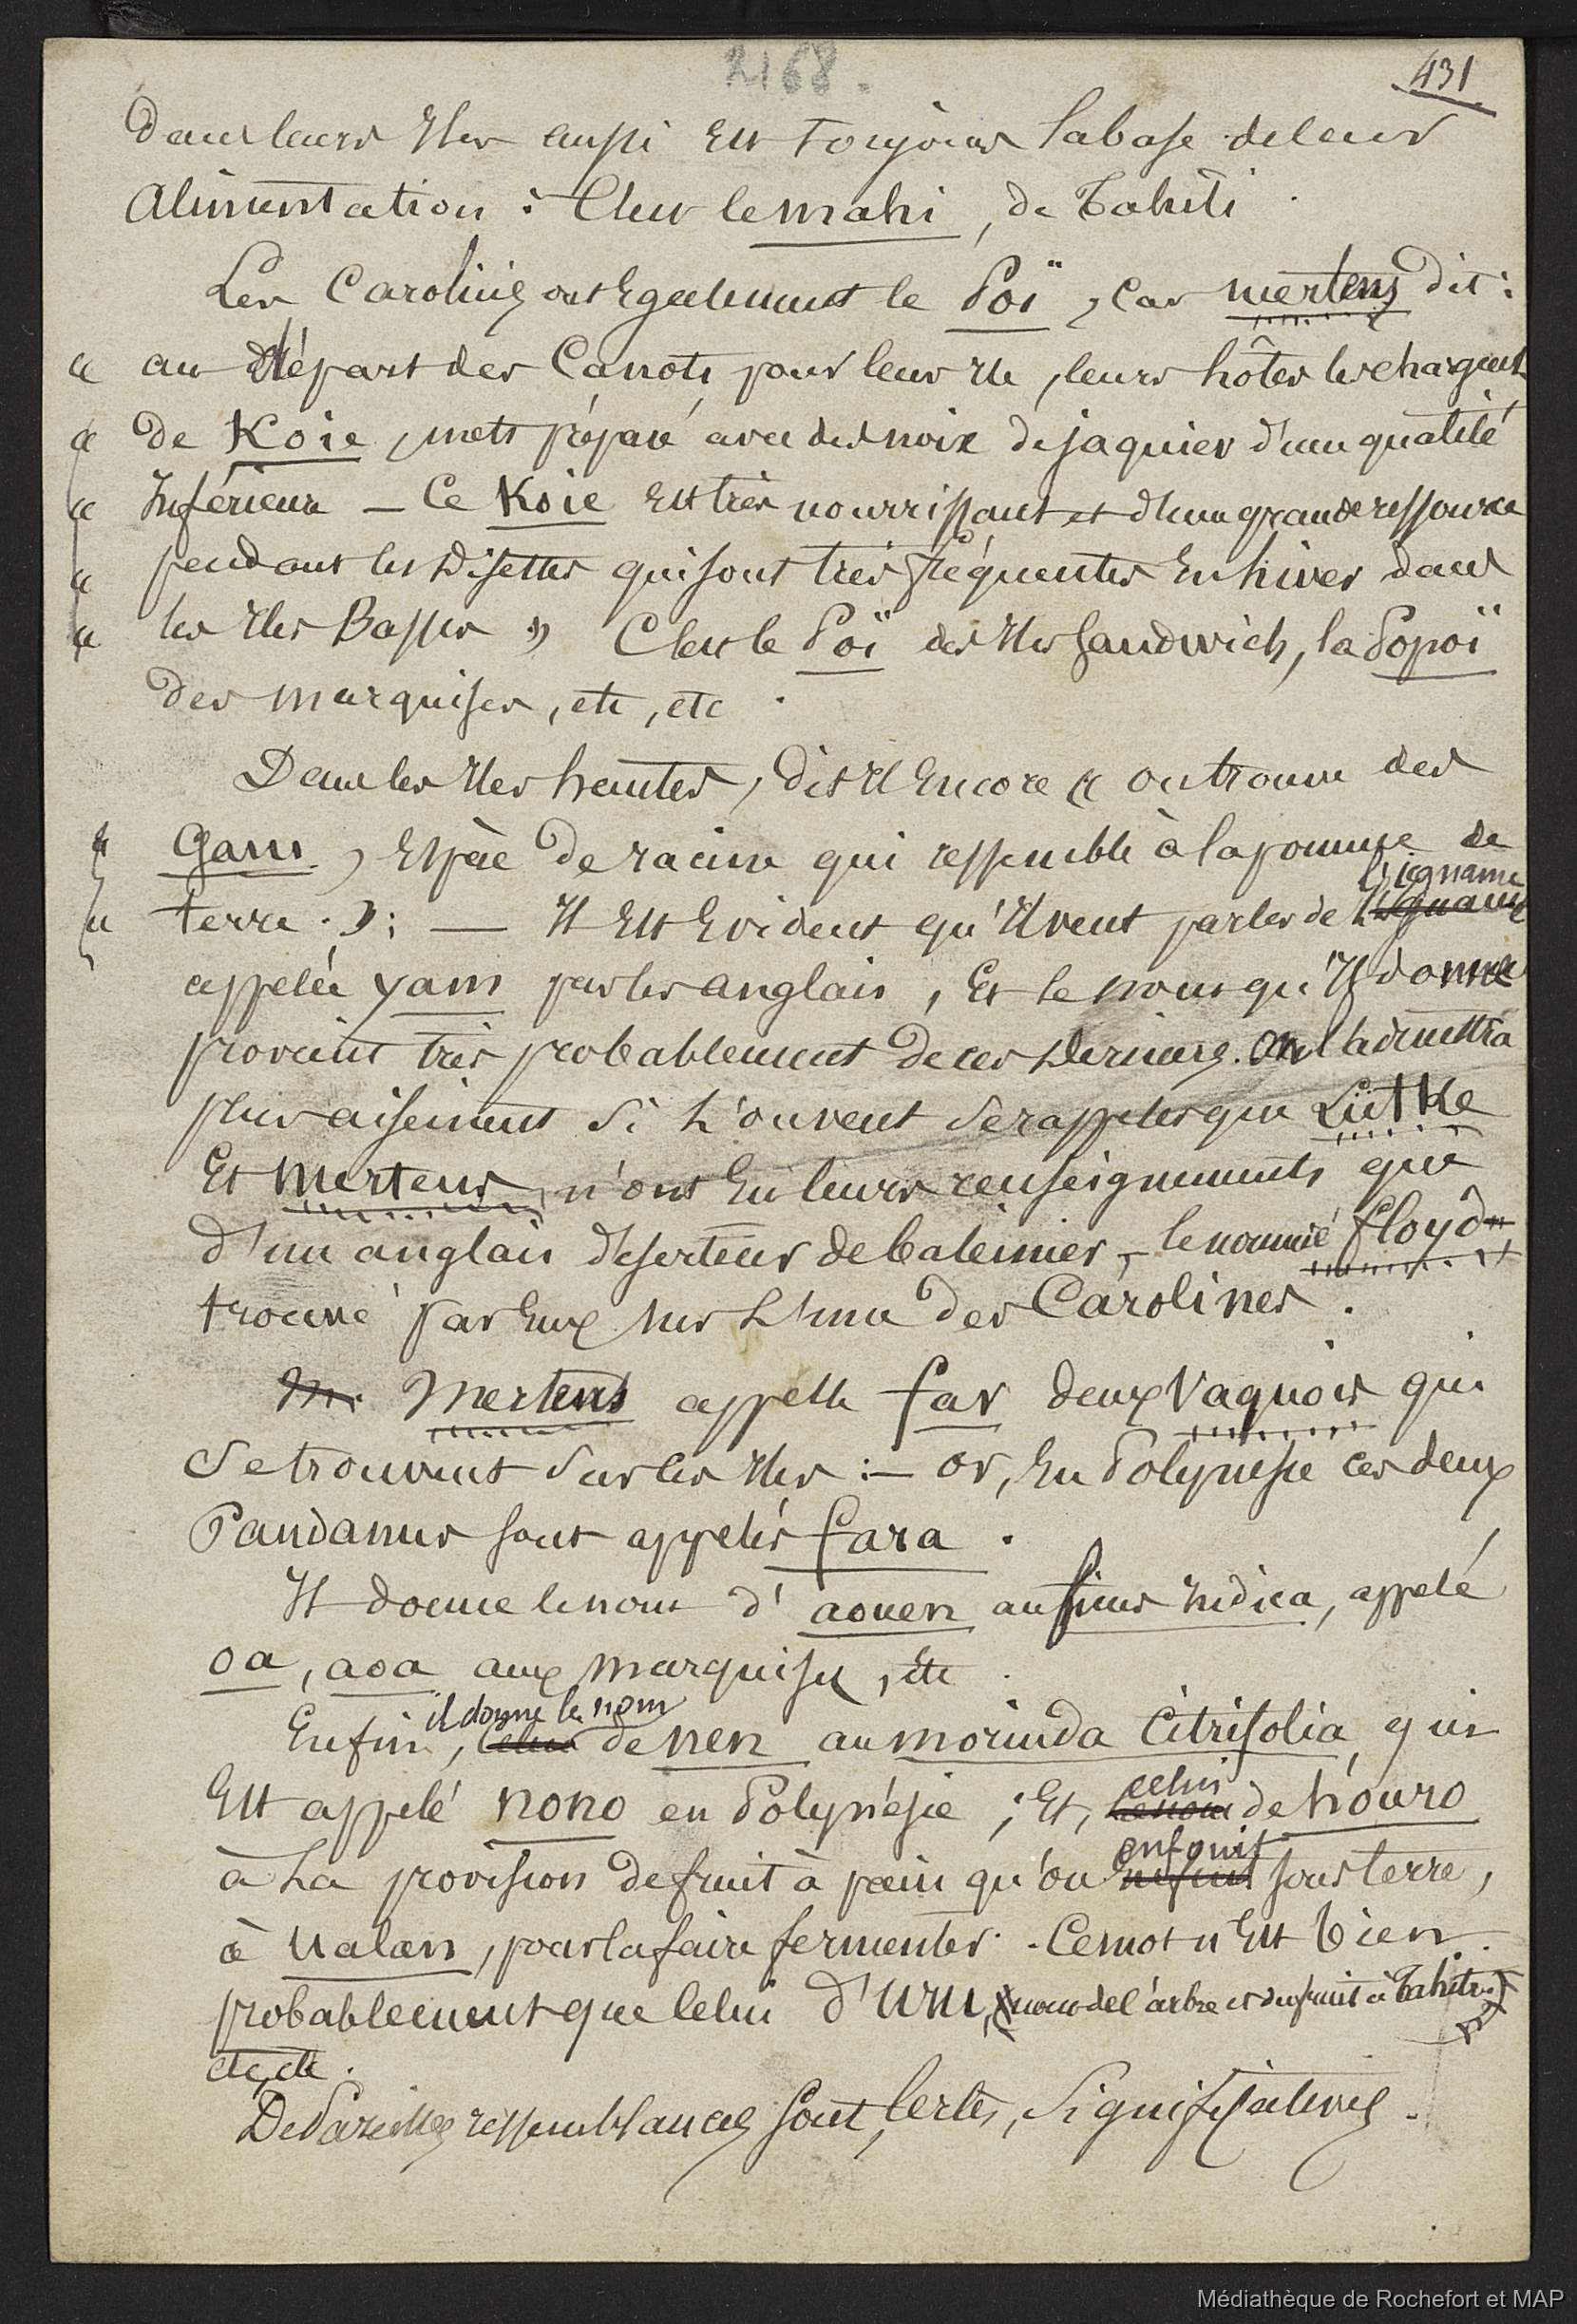 2168.
431
dans leurs Iles aussi Est toujours la base de leur
Alimentation : C'est le mahi, de Tahiti.
Les Carolins ont Egalement le Poï, car mertens dit :
« au Départ des Canots pour leur Ile, leurs hôtes les chargent
« de Koie, mets préparé avec des noix de jaquier d'une qualité
« Inférieure – Ce Koie Est très nourrissant et d'une grande ressource
« pendant les Disettes qui sont très fréquentes En hiver dans
« les Iles Basses » C'est le Poï des Iles Sandwich, la Popoï
des marquises, etc, etc.
Dans les Iles hautes, dit Il Encore « on trouve des
« Gam, Espèce de racine qui ressemble à la pomme de
« terre. » : — Il Est Evident qu'Il veut parler de l'igname
appelée yam par les anglais, Et le nom qu'Il donne
provient très probablement de ces Derniers. On l'admettra
plus aisement si L'on veut se rappeler que Lütke
Et Mertens, n'ont Eu leurs renseignements que
d'un anglais déserteur de baleinier, – le nommé floyd –
trouvé par Eux sur L'une des Carolines.
M. Mertens appelle far deux Vaquois qui
se trouvent sur les Iles : – or, En Polynésie ces deux
Pandanus sont appelés fara.
Il donne le nom d' aouen au ficus Indica, appelé
oa, aoa aux marquises, etc.
il donne le nom
Enfin, celui de nen au morinda Citrifolia, qui
Est appelé nono en Polynésie ; Et, le nom de houro
celui
à La provision de fruit à pain qu'on enfouit sous terre,
à Ualan, pour la faire fermenter. – Ce mot n'Est bien
probablement que Celui d'uru, (nom de l'arbre et du fruit à Tahiti)
etc, etc.
De Pareilles ressemblances sont, Certes, significatives.
Médiathèque de Rochefort et MAP